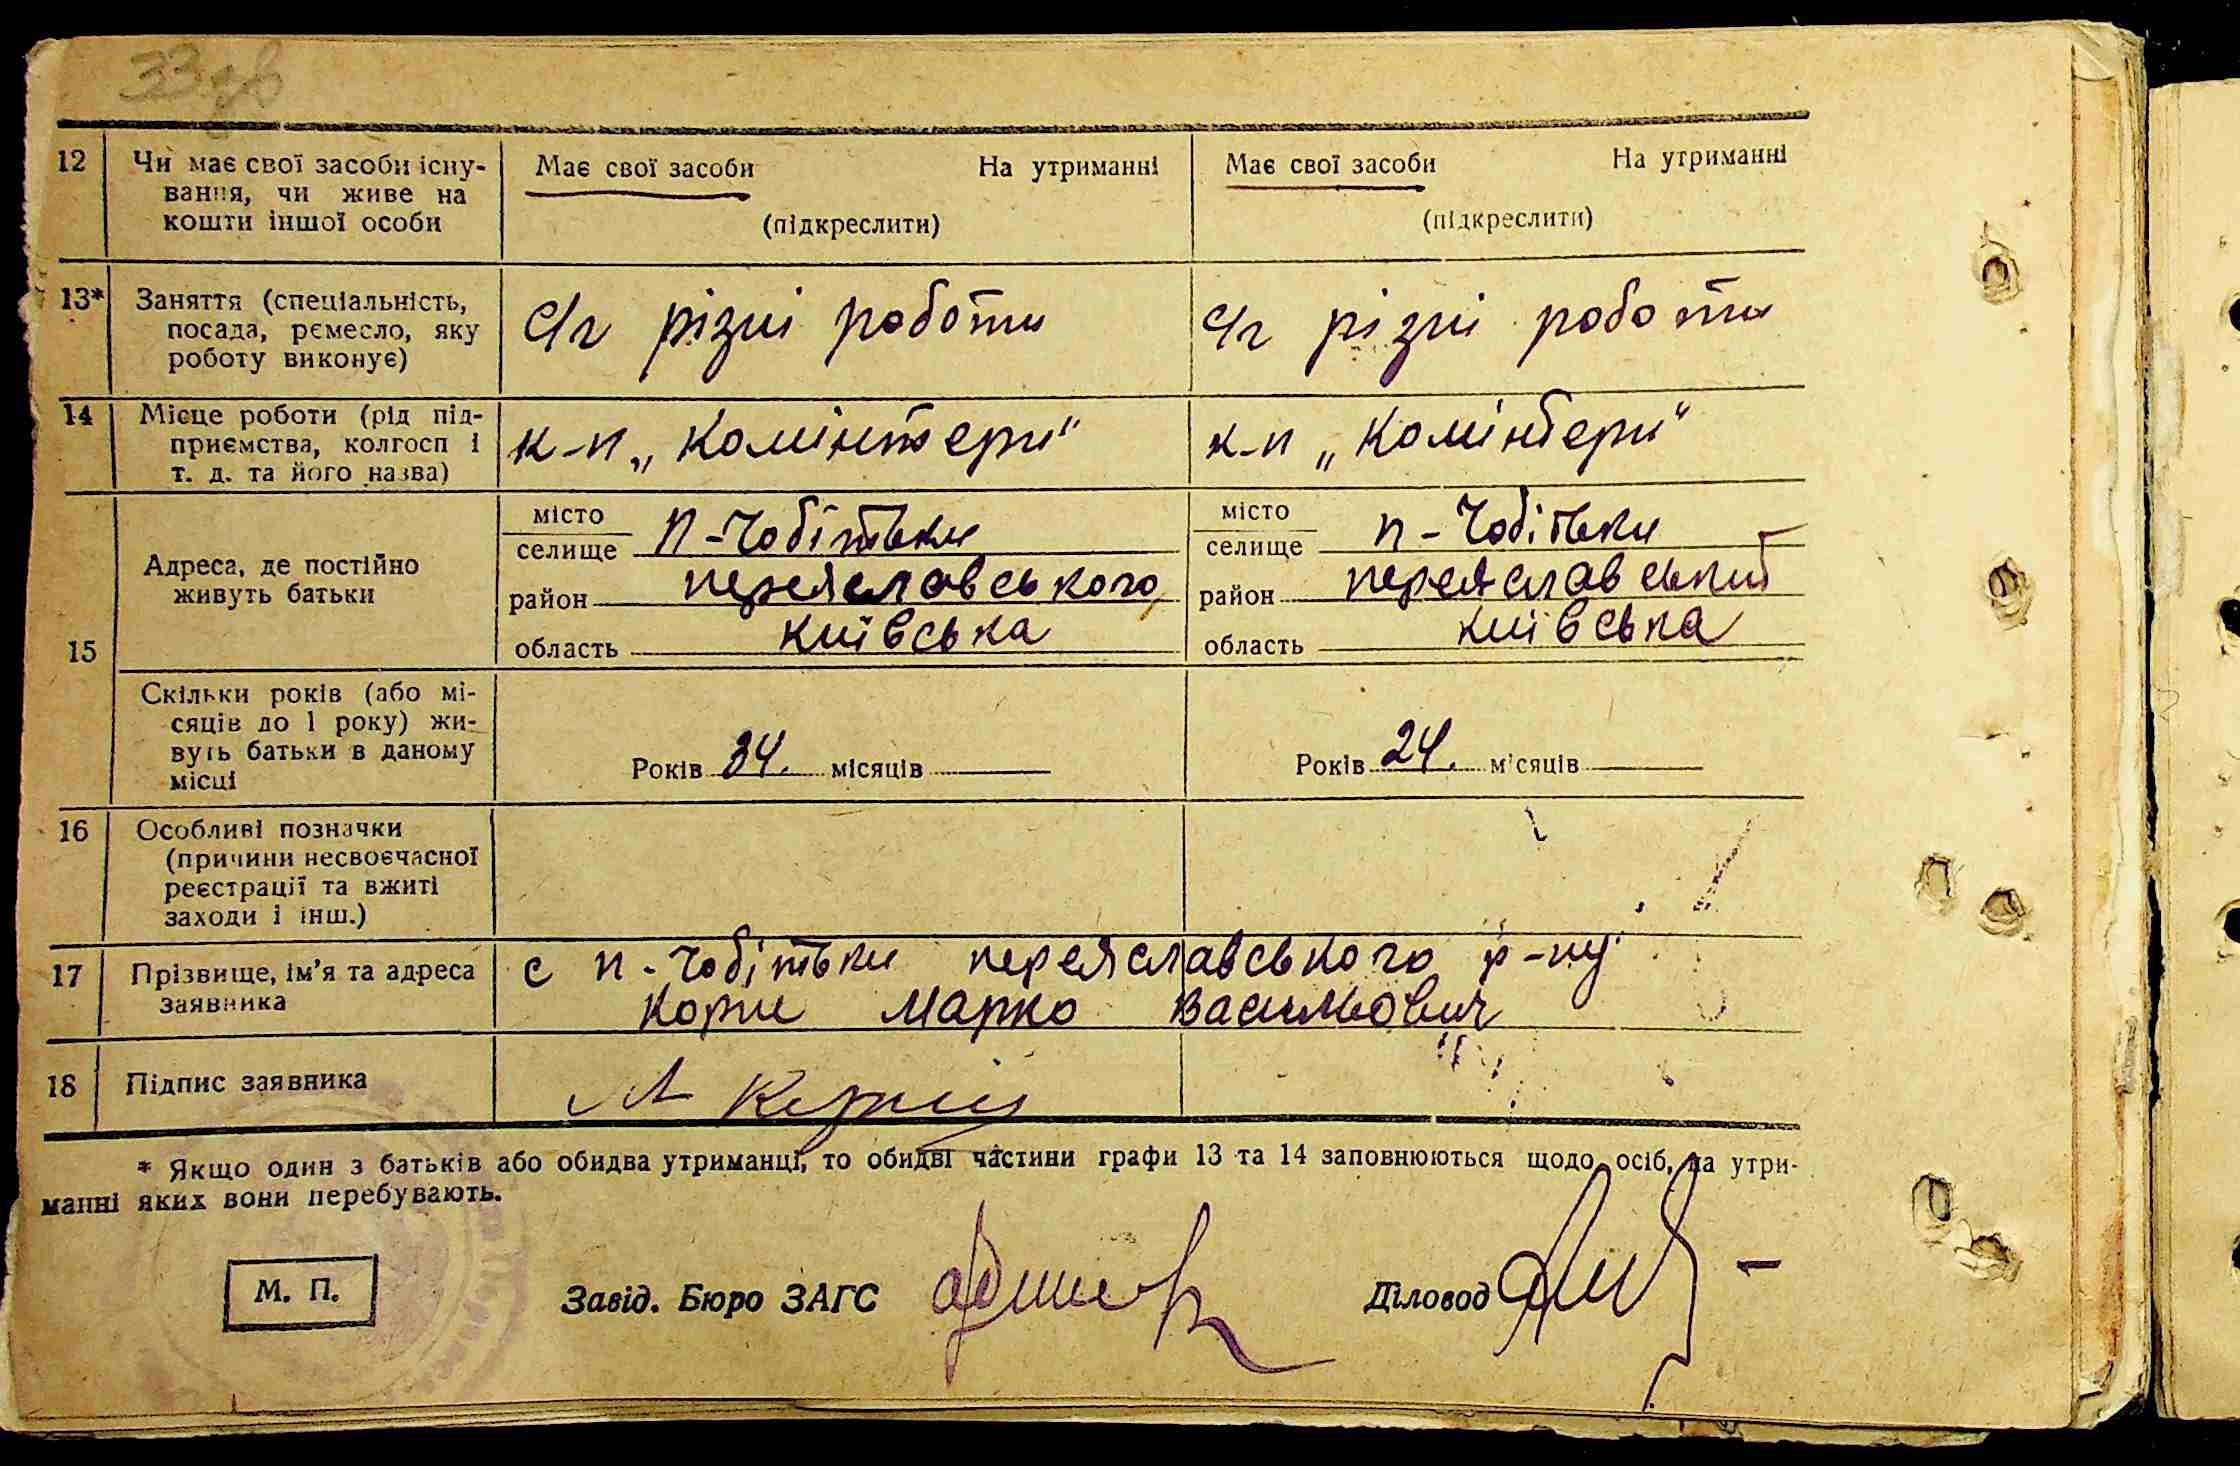 33 зв
12 Чи має свої засоби існу- Має свої засоби На утриманні Має свої засоби На утриманні
вання, чи живе на
кошти іншої особи (підкреслити) (підкреслити)
13* Заняття (спеціальність,
посада, ремесло, яку с/г різні роботи с/г різні роботи
роботу виконує)
14 Місце роботи (рід під-
приємства, колгосп і к-п „Комінтерн" к-п „Комінтерн"
т. д. та його назва)
15 Адреса, де постійно
живуть батьки
місто п-Чобітьки місто п-Чобітьки
селище селище
район переяславського район переяславський
область київська область київська
Скільки років (або мі-
сяців до 1 року) жи-
вуть батьки в даному Років 34. місяців Років 24. місяців
місці
16 Особливі позначки
(причини несвоєчасної
реєстрації та вжиті
заходи і інш.)
17 Прізвище, ім'я та адреса с п-Чобітьки переяславського р-ну
заявника Корж Марко Васильович
18 Підпис заявника
* Якщо один з батьків або обидва утриманці, то обидві частини графи 13 та 14 заповнюються щодо осіб, на утри-
манні яких вони перебувають.
М. П. Завід. Бюро ЗАГС Діловод